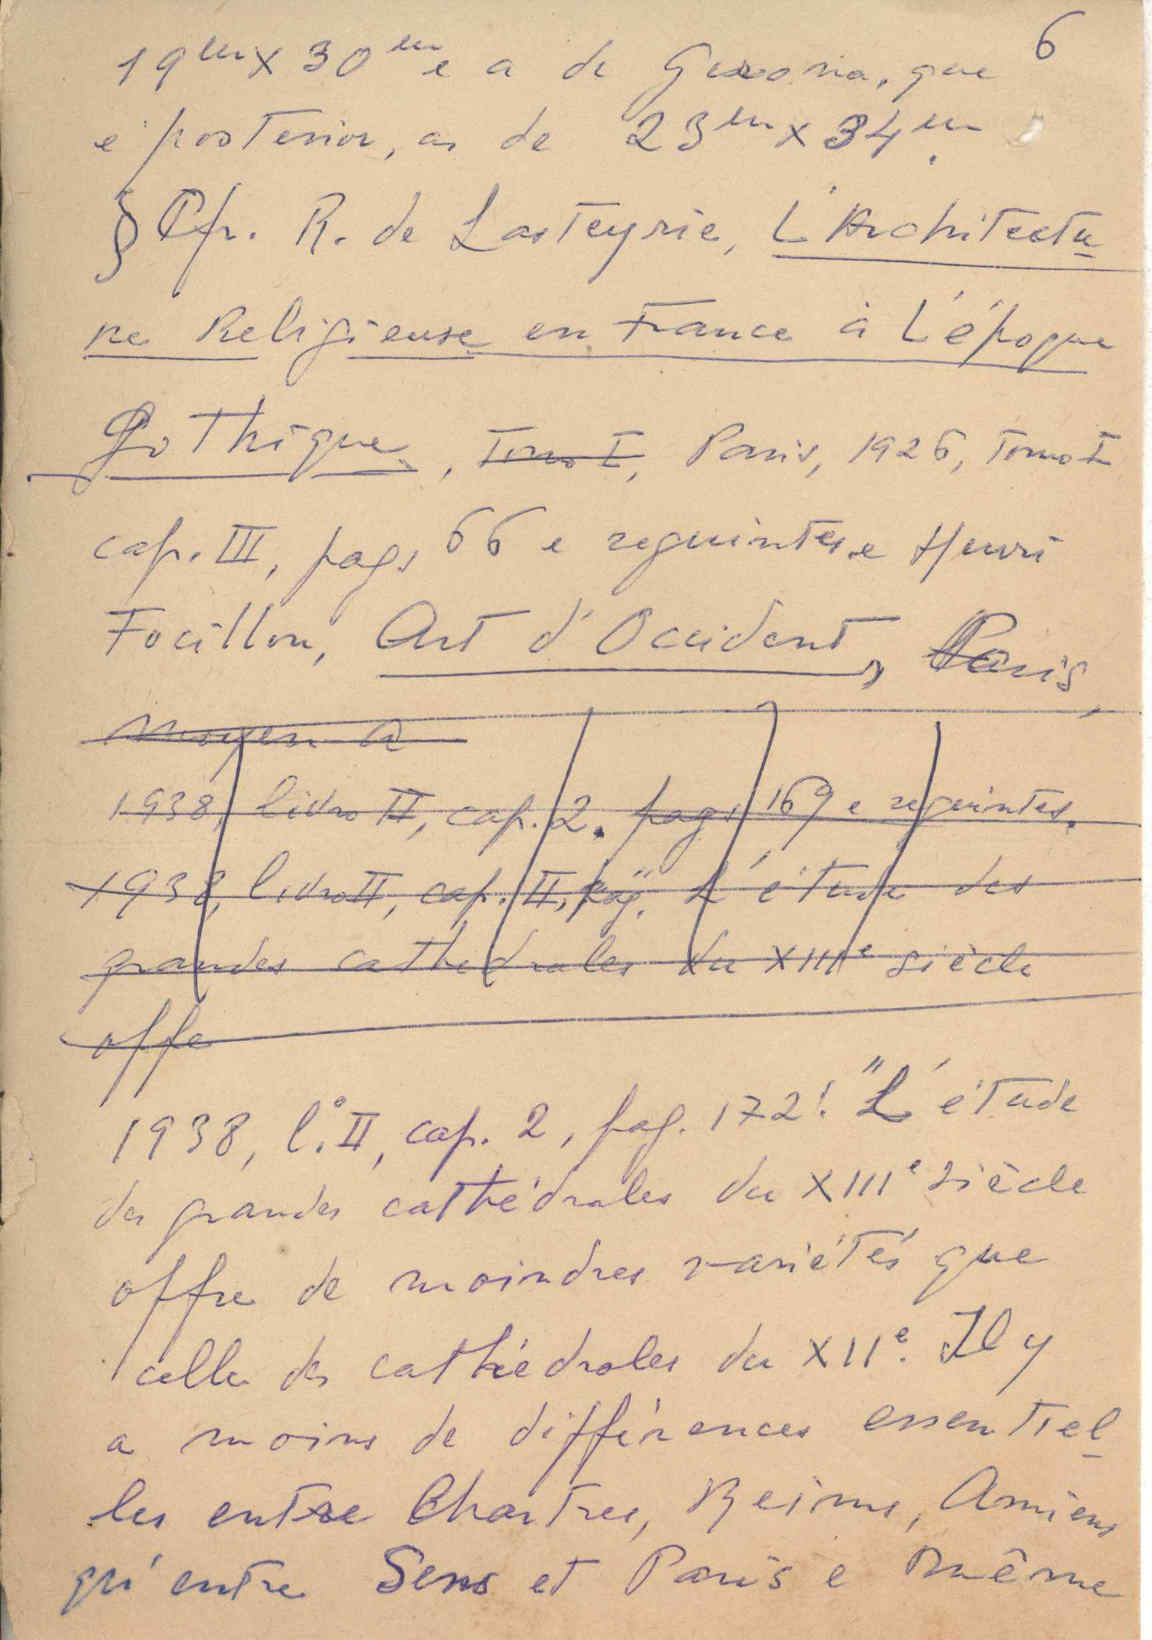 6
19m x 30m e a de Gerona, que
é posterior, as de 23m x 34m.
§ Cfr. R. de Lasteyrie, L'Architectu-
re Religieuse en France à L'époque
Gothique, Tomo I, Paris, 1926, Tomo I
cap. III, pags 66 e seguintes e Henri
Focillon, Art d'Occident, Paris,
moyen a
1938, livro II, cap. 2. pags 169 e seguintes.
1938, livro II, cap. II, pag. "L'étude des
grandes cathedrales du XIIIe siècle
offe
1938, l.º II, cap. 2, pag. 172: "L'étude
des grandes cathédrales du XIIIe siècle
offre de moindres variétés que
celle des cathédrales du XIIe. Il y
a moins de différences essentiel-
les entre Chartres, Reims, Amiens
qu'entre Sens et Paris e même